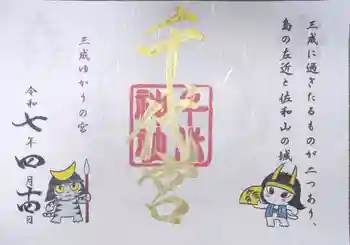 三成に過ぎたるものが二つあり、
島の左近と佐和山の城
千代宮
三成ゆかりの宮
令和七年四月十四日